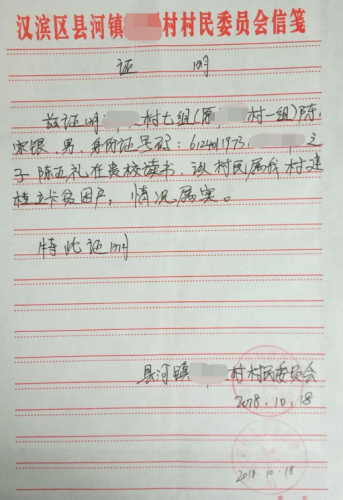 汉滨区县河镇 村村民委员会信笺
证 明
兹证明 村七组(原 村一组)陈
家银,男,身份证号码:6124011973 之
子陈正礼在贵校读书。该村民属我村建
档立卡贫困户,情况属实。
特此证明
县河镇 村村民委员会
2018.10.18
2018.10.18